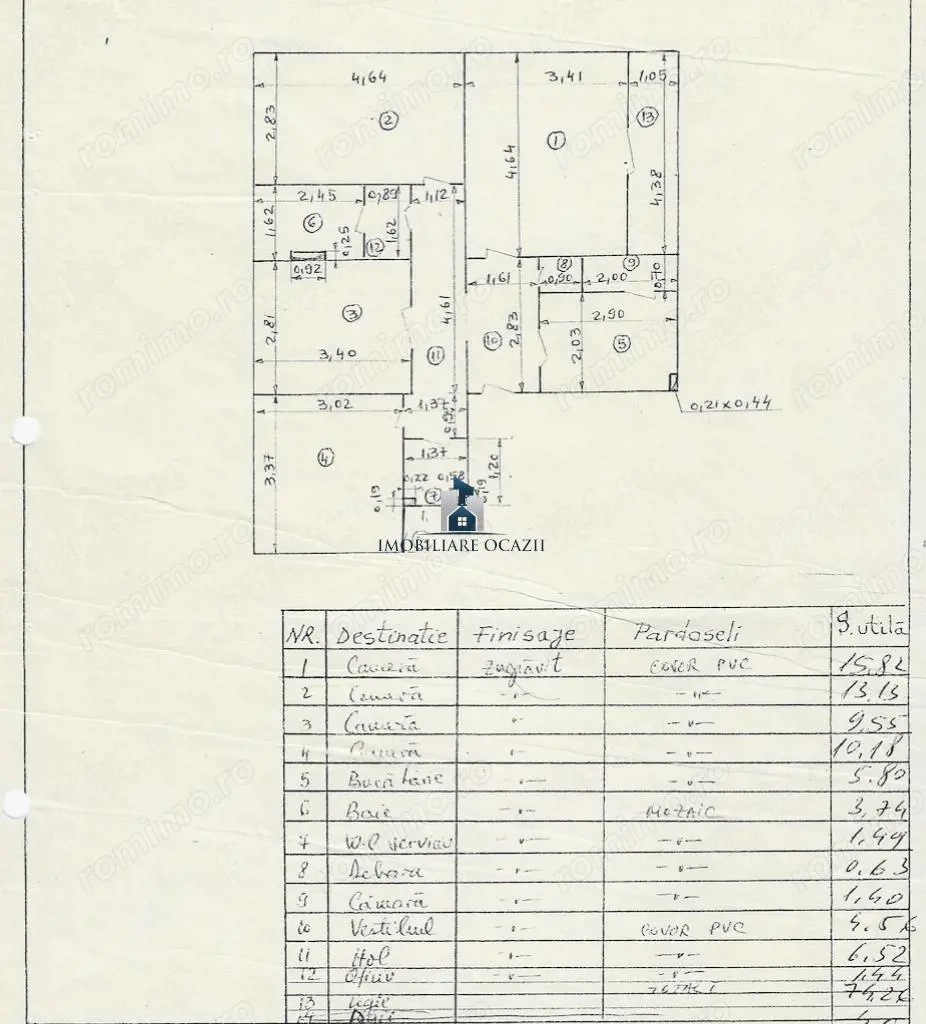 4,64 3,41 1,05
2,83 2 1 13
4,64
4,38
2,45 0,89 1,12
1,62 6 0,25 12 1,62
0,92
8 9
1,61 0,90 2,00 0,70
2,90
2,81 3 4,61 10 2,83 2,03 5
3,40 11
0,21x0,44
3,02 1,37
4 1,37
3,37 1,20
0,22 0,58
0,19 7 0,19
1.
IMOBILIARE OCAZII
NR. Destinatie Finisaje Pardoseli S.utilă
1 Cameră zugrăvit COVOR PVC 15,82
2 Cameră -"- -"- 13.13
3 Cameră -"- -"- 9,55
4 Cameră -"- -"- 10,18
5 Bucătărie -"- -"- 5.80
6 Baie -"- MOZAIC 3,74
7 W.C serviciu -"- -"- 1,49
8 Debara -"- -"- 0.63
9 Cămară -"- -"- 1,40
10 Vestibul -"- COVOR PVC 4.56
11 Hol -"- -"- 6,52
12 Oficiu -"- -"- 1,44
TOTAL 1 74,26
13 Logie
14
romimo.ro